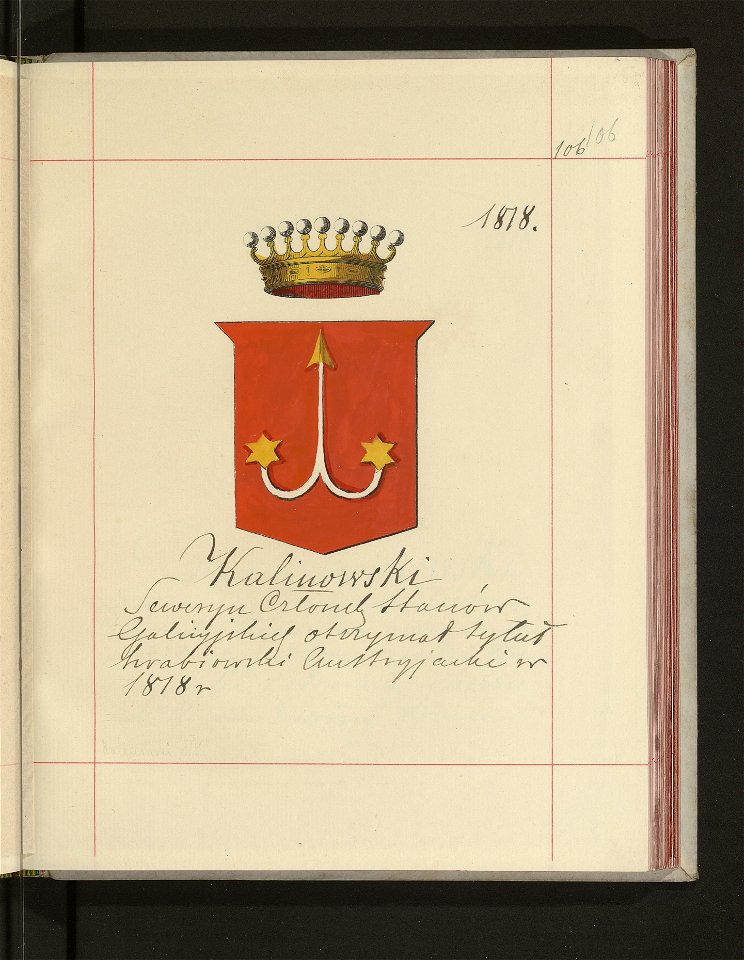 106 106
1818.
Kalinowski
Seweryn Członek Stanów
Galicyjskich otrzymał tytuł
hrabiowski Austryjacki w
1818 r